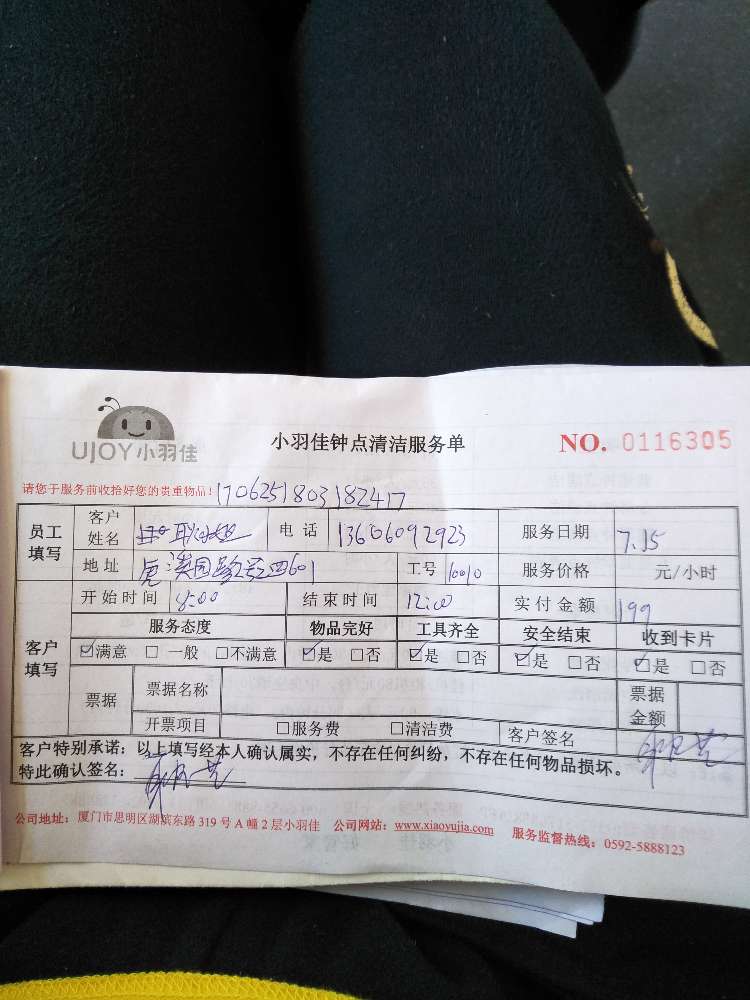 UJOY小羽佳
小羽佳钟点清洁服务单
NO. 0116305
请您于服务前收拾好您的贵重物品！
1706251803182417
员工填写 客户姓名 电话 13606092923 服务日期 7.15
地址 工号 10010 服务价格 元/小时
客户填写 开始时间 8:00 结束时间 12:00 实付金额 199
服务态度 物品完好 工具齐全 安全结束 收到卡片
☑满意 □一般 □不满意 ☑是 □否 ☑是 □否 ☑是 □否 ☑是 □否
票据 票据名称 票据金额
开票项目 □服务费 □清洁费 客户签名
客户特别承诺：以上填写经本人确认属实，不存在任何纠纷，不存在任何物品损坏。
特此确认签名：
公司地址：厦门市思明区湖滨东路 319 号 A 幢 2 层小羽佳 公司网站：www.xiaoyujia.com 服务监督热线：0592-5888123